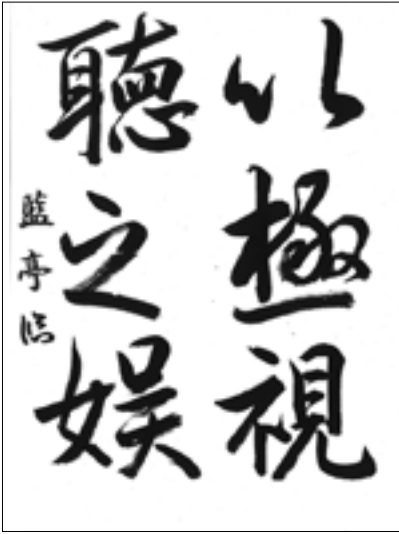 以極視
聽之娯
藍亭臨